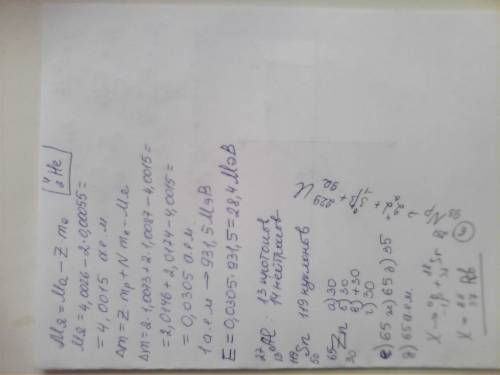 Mя = Ma - Z·me
Mя = 4,0026 - 2·0,00055 =
= 4,0015 а.е.м.
Δm = Z mp + N mn - Mя
Δm = 2·1,0073 + 2·1,0087 - 4,0015 =
= 2,0146 + 2,0174 - 4,0015 =
= 0,0305 а.е.м.
1 а.е.м → 931,5 МэВ
E = 0,0305·931,5 = 28,4 МэВ
⁴₂He
²⁷₁₃Al 13 протонов
14 нейтронов
¹¹⁹₅₀Sn 119 нуклонов
⁶⁵₃₀Zn а) 30
б) 30
в) +30
г) 30
е) 65 ж) 65 д) 35
з) 65 а.е.м.
4
X → ⁰₋₁β +
X = Rb